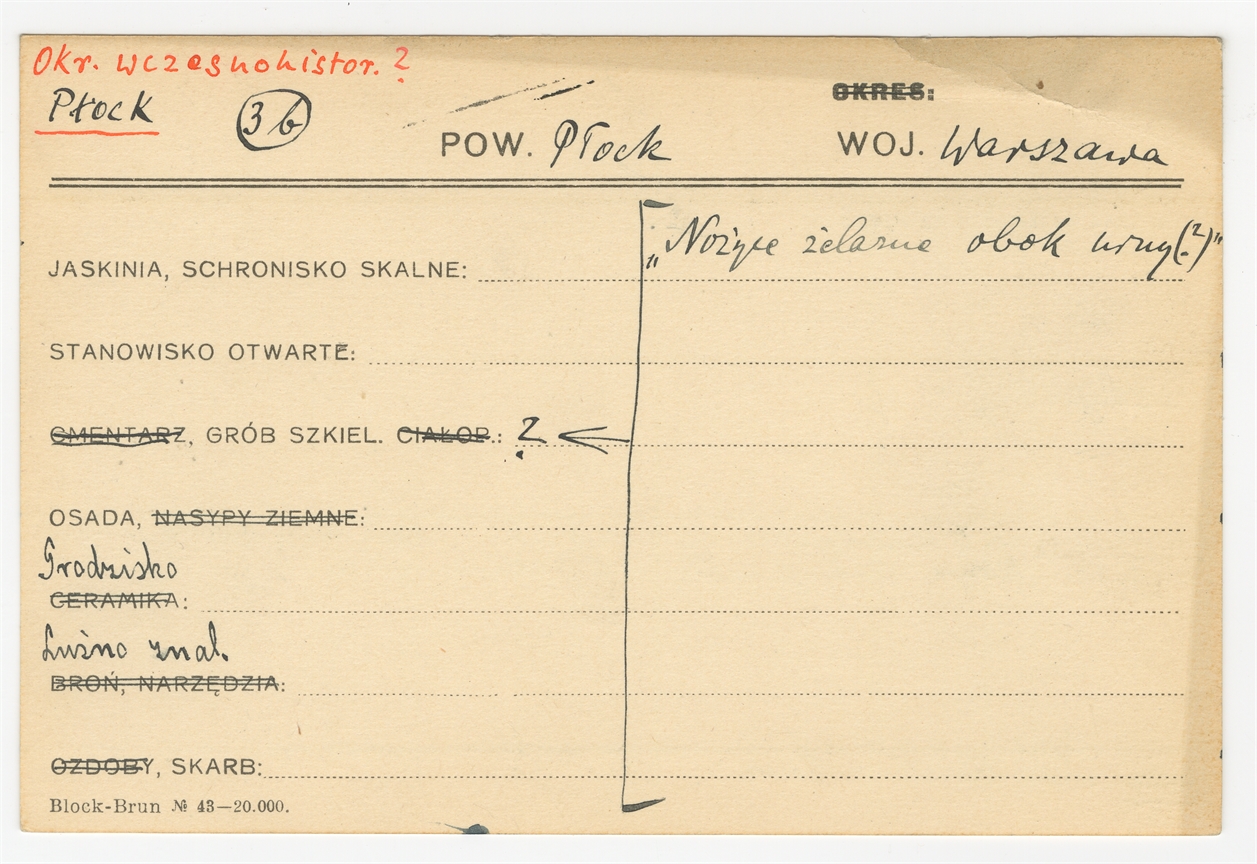 Okr. wczesnohistor. ?
Płock
3 b
OKRES:
POW. Płock
WOJ. Warszawa
„Nożyce żelazne obok urny(?)"
JASKINIA, SCHRONISKO SKALNE:
STANOWISKO OTWARTE:
CMENTARZ, GRÓB SZKIEL. CIAŁOP.: ?
OSADA, NASYPY ZIEMNE:
Grodzisko
CERAMIKA:
Luźno znal.
BROŃ, NARZĘDZIA:
OZDOBY, SKARB:
Block-Brun № 43—20.000.